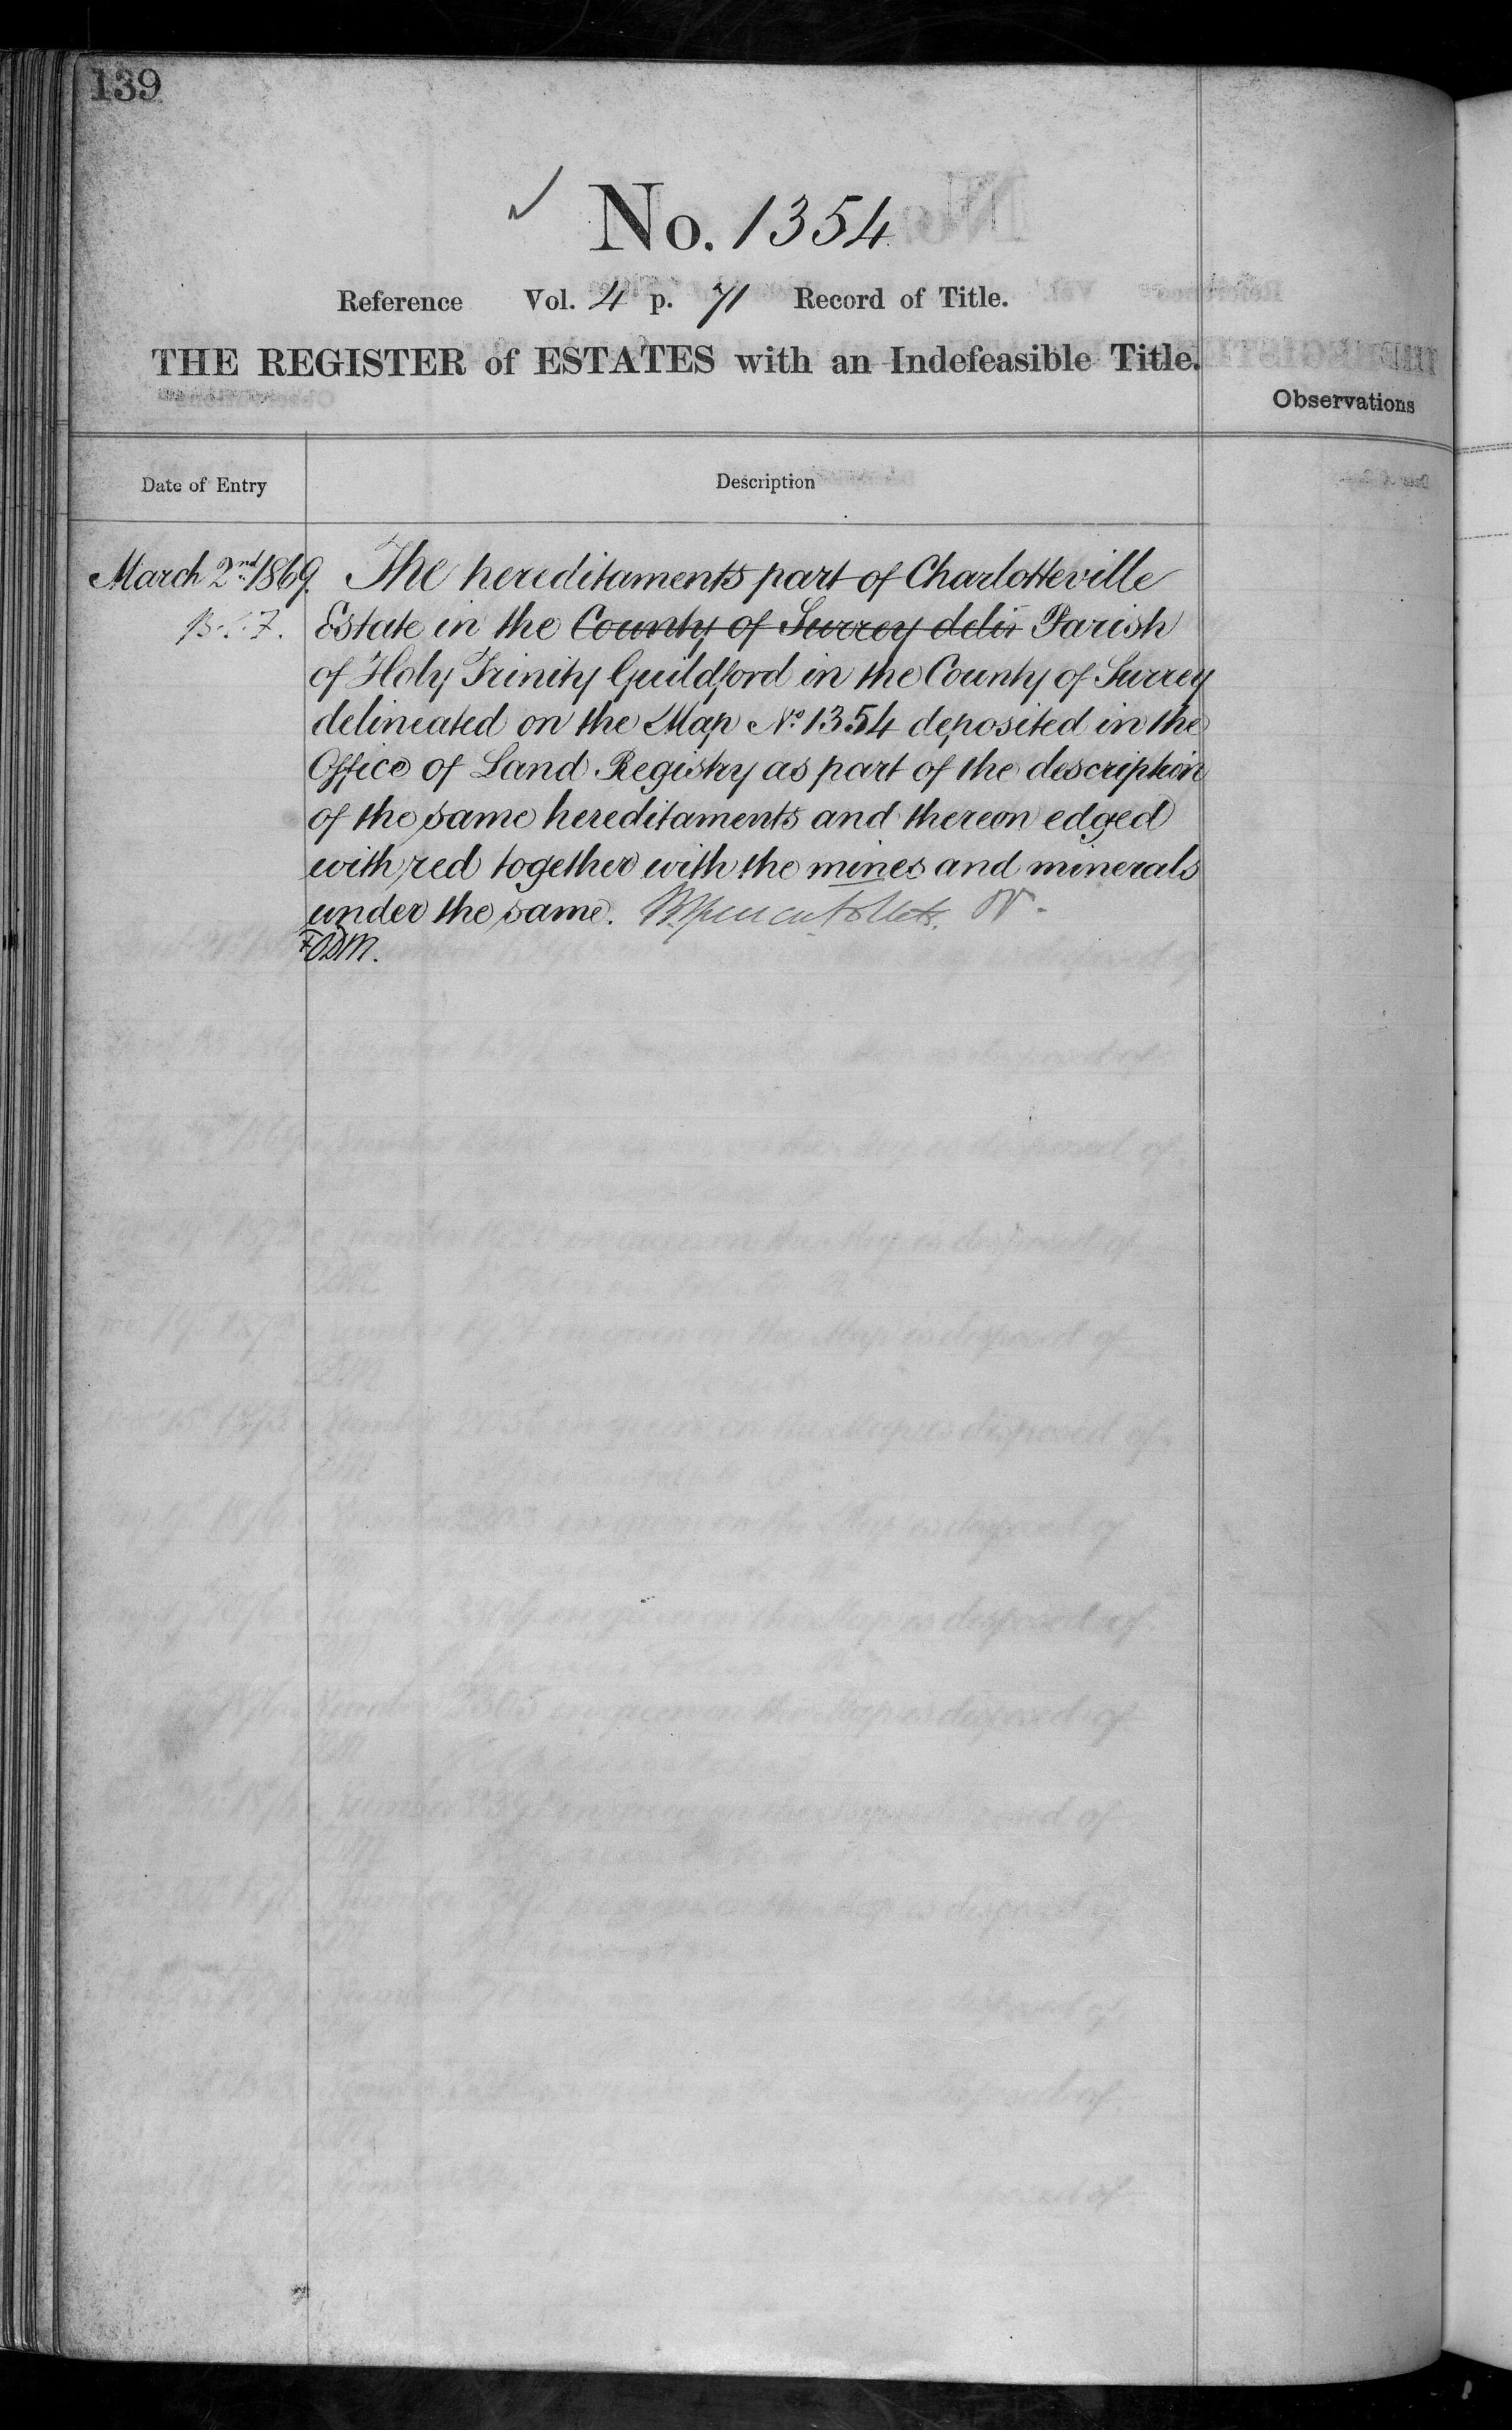 139
No. 1354
Reference Vol. 4 p. 71 Record of Title.
THE REGISTER of ESTATES with an Indefeasible Title.
Observations
Date of Entry
Description
March 2nd 1869. The hereditaments part of Charlotteville
B.S.F. Estate in the County of Surrey delin Parish
of Holy Trinity Guildford in the County of Surrey
delineated on the Map No. 1354 deposited in the
Office of Land Registry as part of the description
of the same hereditaments and thereon edged
with red together with the mines and minerals
under the same.